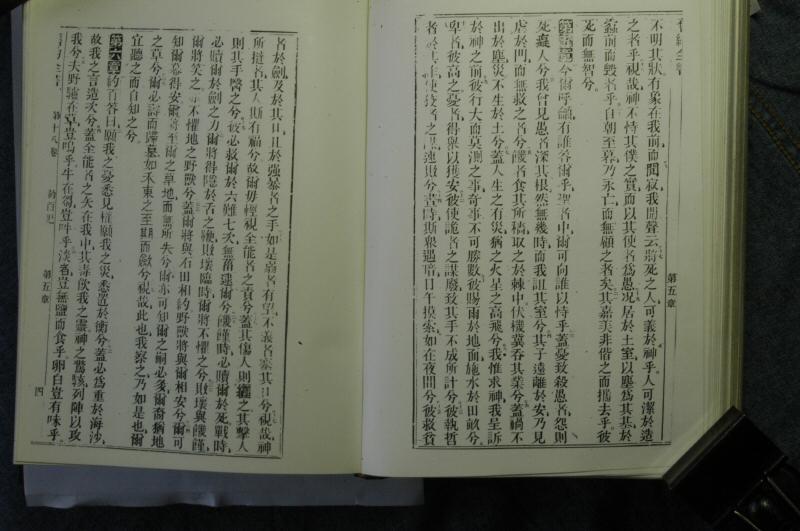 舊約全書
不明其狀有象在我前而聞寂我聞聲云將死之人可義於神乎人可潔於造
之者乎視哉神不恃其僕之實而以其使者為愚況居於土室以塵為其基於
蠹前而毀者乎自朝至暮乃永亡而無顧之者矣其嘉美非偕之而擕去乎彼
死而無智兮
第五章今爾呼籲有誰答爾乎聖者中爾可向誰以恃乎蓋憂致殺愚者怨則
死蠢人兮我曾見愚者深其根然無幾時而我詛其室兮其子遠離於安乃見
虐於門而無救之者兮饑者食其所積取之於棘中伏機冀吞其業兮蓋禍不
出於塵災不生於土兮蓋人生之有災病之火星之高飛兮我惟求神我呈訴
於神之前彼行大而莫測之事奇事不可勝數彼賜爾於地面施水於田畝兮
卑者彼高之憂者得舉以獲安彼使詭者之謀廢致其手不成所計兮彼執哲
者於其詐使狡者之謀速敗兮晝時斯眾遇暗日午摸索如在夜間兮彼救貧
第五章
者於劍及於其口且於強暴者之手如是窮者有望不義者塞其口兮視哉神
所撻者其人斯有福兮故爾毋輕視全能者之責兮蓋其傷人則纏之其擊人
則其手醫之兮彼必救爾於六難七次無菑逮爾兮饑饉時必贖爾於死戰時
必贖爾於劍之力爾將得隱於舌之機敗壞臨時爾將不懼之兮敗壞與饑饉
爾將笑之不懼地之野獸兮蓋爾將與石田相約野獸將與爾相安兮爾可
知爾幕得安爾將至爾之草地而無所失兮爾亦可知爾之嗣必多爾裔猶地
之草兮爾必壽而歸墓如禾束之至期而斂兮視哉此也我察之乃如是也爾
宜聽之而自知之兮
第六章約百答曰願我之憂悉見權願我之災悉置於衡兮蓋必為重於海沙
故我之言造次兮蓋全能者之矢在我中其毒飲我之靈神之驚駭列陣以攻
我兮夫野驢在草豈鳴乎牛在芻豈吽乎淡者豈無鹽而食乎卵白豈有味乎
第十八卷
約百記
第五章
四